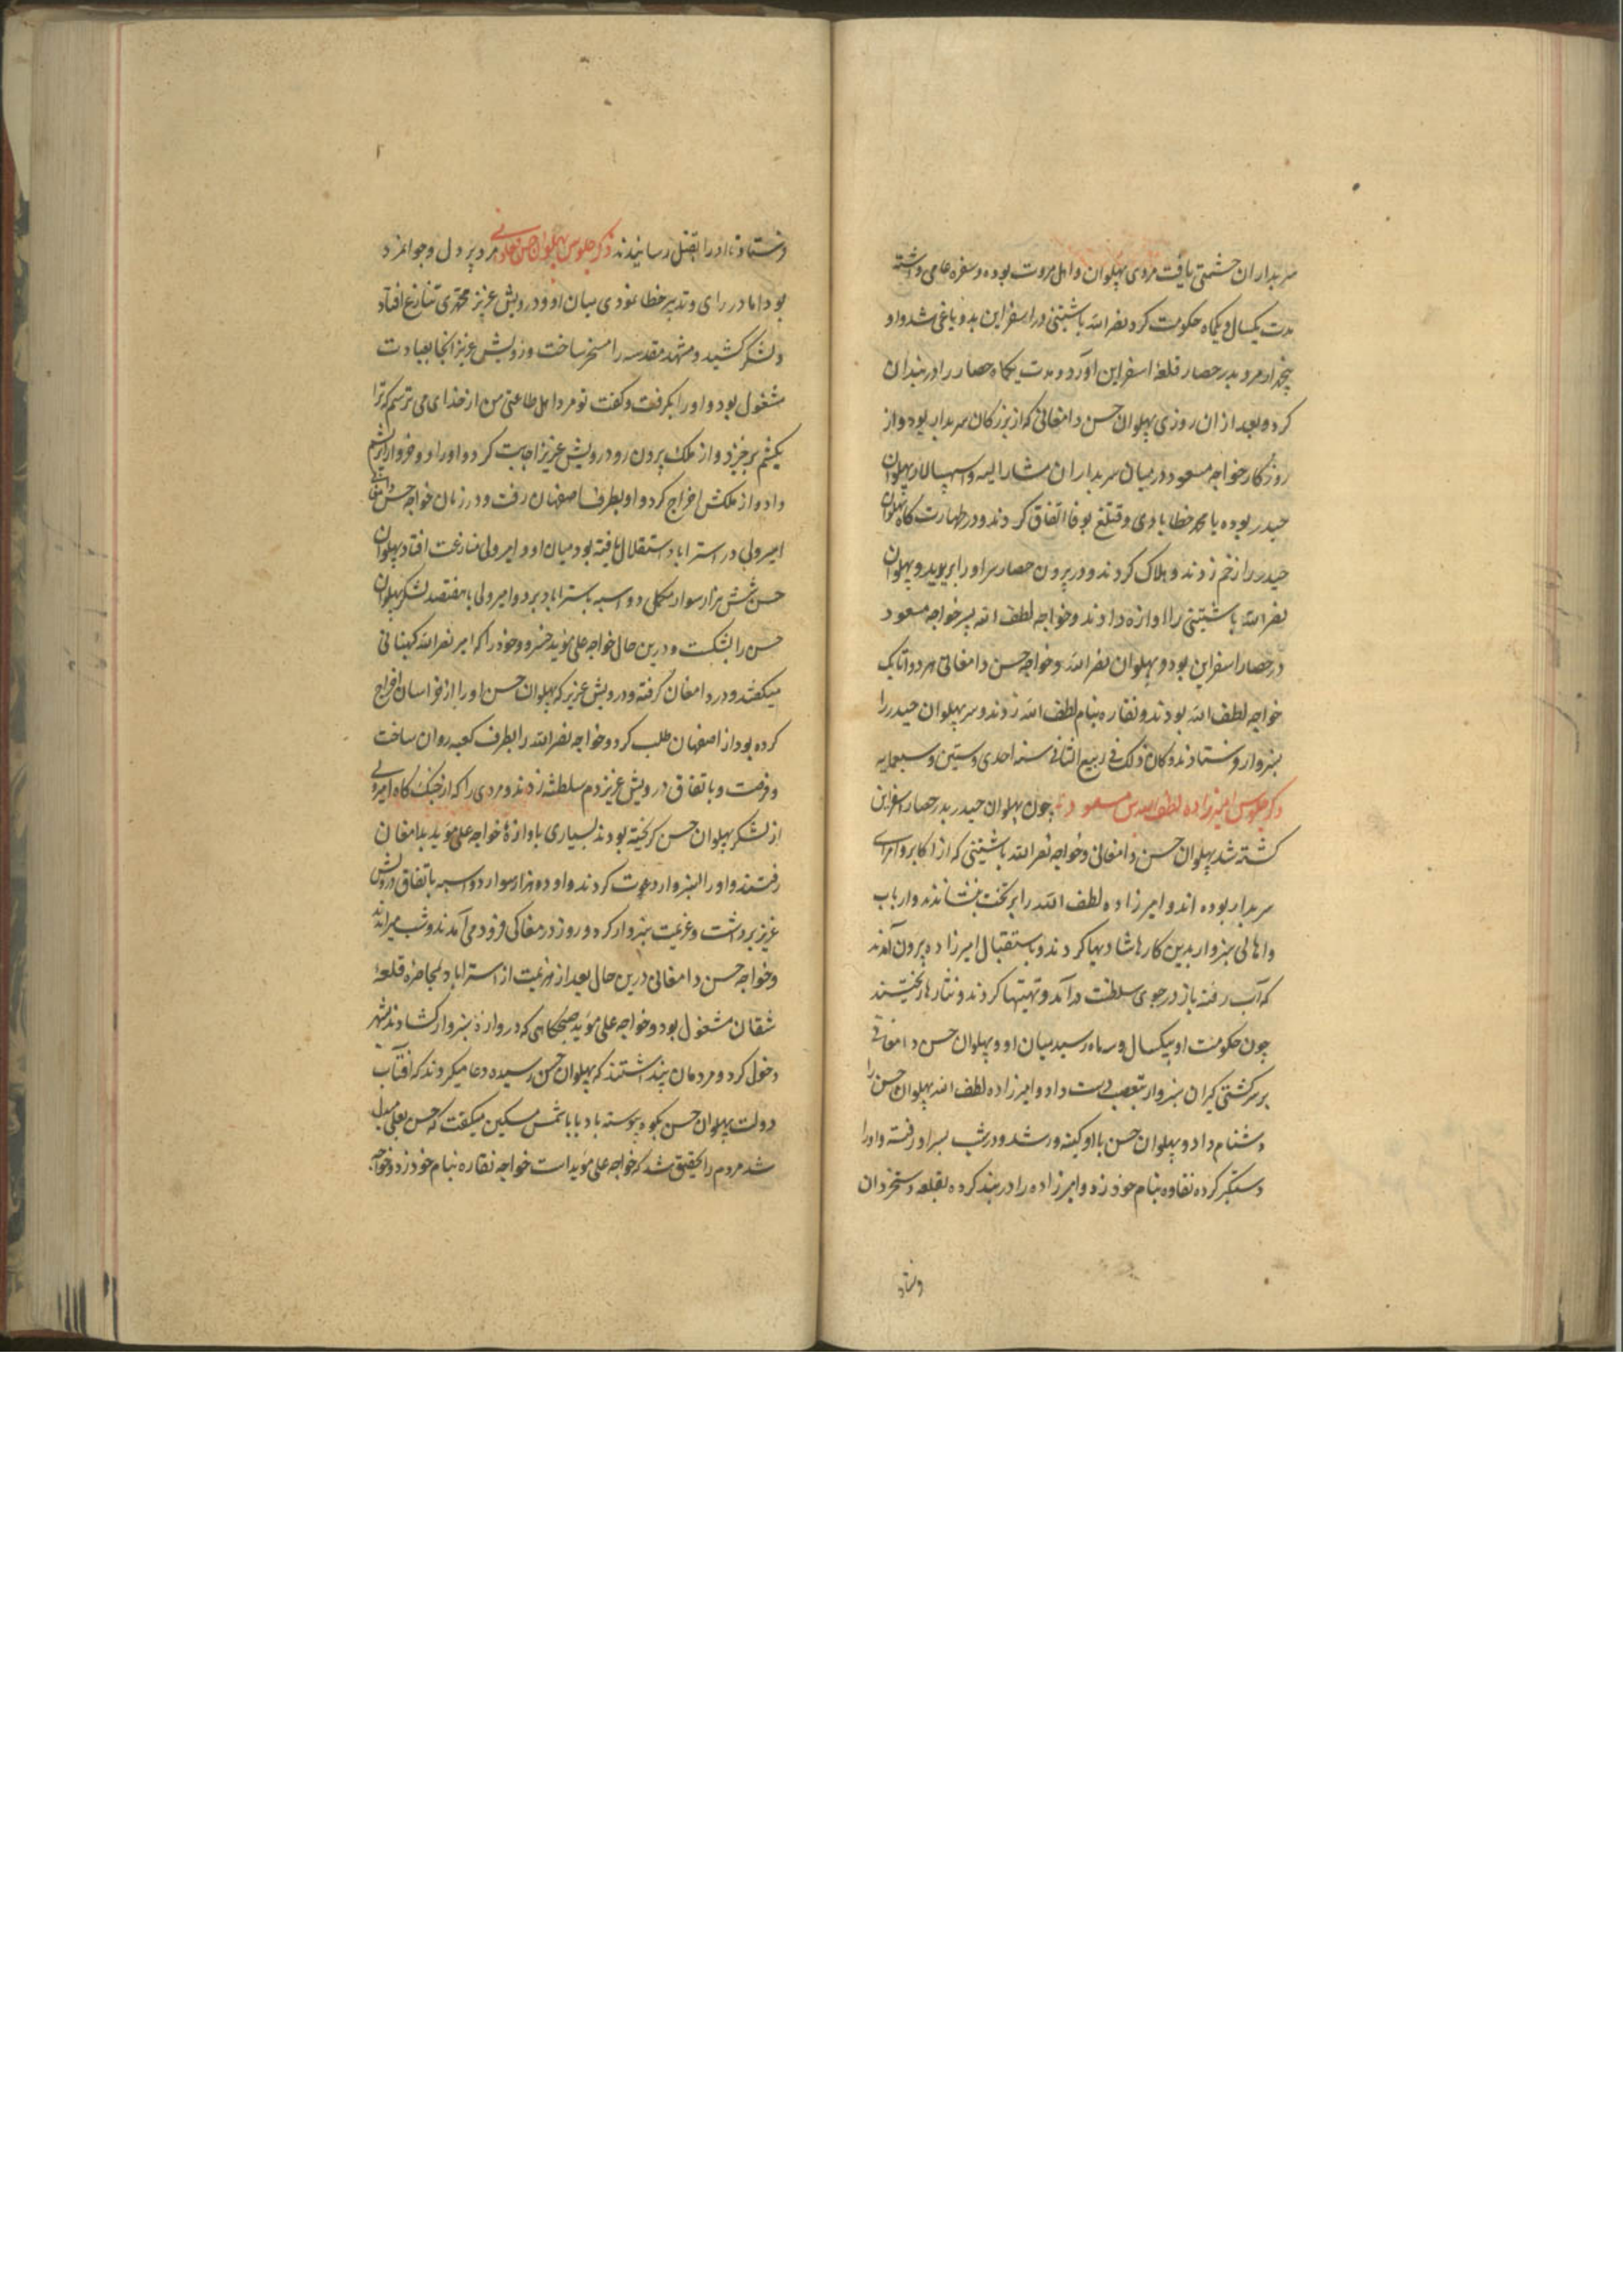 سربداران حشمتی یافت مردی پهلوان و اهل مروت بوده و سفره عامی داشته
مدت یکسال و یکماه حکومت کرد نصر الله باشتینی در اسفراین بدو یاغی شد و او
بدر حصار قلعهٔ اسفراین آورد و مدت یکماه حصار را در بندان
کرد و بعد از ان روزی پهلوان حسن دامغانی که از بزرکان سربدار بود و از
روزکار خواجه مسعود در میان سربداران مشار الیه و سپهسالار پهلوان
حیدر بوده با محمد خطابادی و قتلغ بوقا اتفاق کردند و در طهارت کاه پهلوان
حیدر را زخم زدند و هلاک کردند و در بیرون حصار سر او را ببریدند و پهلوان
نصر الله باشتینی را اوازه دادند و خواجه لطف الله پسر خواجه مسعود
در حصار اسفراین بود و پهلوان نصر الله و خواجه حسن دامغانی هر دو اتابک
خواجه لطف الله بودند و نقاره بنام لطف الله زدند و سر پهلوان حیدر را
بسبزوار فرستادند و کان ذلک فی ربیع الثانی سنه احدی و ستین و سبعمایه
ذکر جلوس امیرزاده لطف الله بن مسعود چون پهلوان حیدر بدر حصار اسفراین
کشته شد پهلوان حسن دامغانی و خواجه نصر الله باشتینی که از اکابر و امرای
سربدار بوده اند و امیرزاده لطف الله را بر تخت نشاندند و ارباب
و اهالی سبزوار بدین کار شادیها کردند و باستقبال امیرزاده بیرون آمدند
که آب رفته باز در جوی سلطنت در آمد و تهنیتها کردند و نثارها ریختند
چون حکومت او بیکسال و سه ماه رسید میان او و پهلوان حسن دامغانی
بر سر کشتی کیران سبزوار تعصب دست داد و امیرزاده لطف الله پهلوان حسن را
دشنام داد و پهلوان حسن با او کینه ور شد و در شب بسر او رفته و او را
دستکیر کرده نقاره بنام خود زد و امیرزاده را در بند کرده بقلعه دستجردان
فرستاد
فرستاد و او را بقتل رسانیدند ذکر جلوس پهلوان حسن دامغانی مرد پردل و جوانمرد
بود اما در رای و تدبیر خطا نمودی میان او و درویش عزیز مجدی تنازع افتاد
و لشکر کشید و مشهد مقدسه را مسخر ساخت و درویش عزیز انجا بعبادت
مشغول بود و او را بکرفت و کفت تو مرد اهل طاعتی من از خدای می ترسم که ترا
بکشم برخیز و از ملک بیرون رو درویش عزیز اجابت کرد و او را دو خروار ابریشم
داد و از ملکش اخراج کرد و او بطرف اصفهان رفت و در زمان خواجه حسن دامغانی
امیر ولی در استراباد استقلال یافته بود میان او و امیر ولی منازعت افتاد پهلوان
حسن شش هزار سوار مکمل دو اسبه باستراباد برد و امیر ولی با هفتصد لشکر پهلوان
حسن را بشکست و درین حال خواجه علی موید خروج خود را که امیر نصر الله کهستانی
میکفتند و در دامغان کرفته و درویش عزیز که پهلوان حسن او را از خراسان اخراج
کرده بود از اصفهان طلب کرد و خواجه نصر الله را بطرف کعبه روان ساخت
و فرصت و باتفاق درویش عزیز دم سلطنت زدند و مردمی را که از جنک کاه امیر ولی
از لشکر پهلوان حسن کریخته بودند بسیاری باوازهٔ خواجه علی موید بدامغان
رفتند و او را بسبزوار دعوت کردند و او دو هزار سوار دو اسبه باتفاق درویش
عزیز برداشت و عزیمت سبزوار کرده و روز در مغاکی فرود می آمدند و شب میراندند
و خواجه حسن دامغانی درین حال بعد از هزیمت از استراباد بمحاصره قلعهٔ
شقان مشغول بود و خواجه علی موید صبحکاهی که دروازهٔ سبزوار کشادند بشهر
دخول کرد و مردمان پنداشتند که پهلوان حسن رسیده دعا میکردند که آفتاب
دولت پهلوان حسن بکوه پیوسته باد بابا شمس مسکین میکفت که حسن بعلی مبدل
شد مردم را تحقیق شد که خواجه علی موید است خواجه نقاره بنام خود زد و خواجه